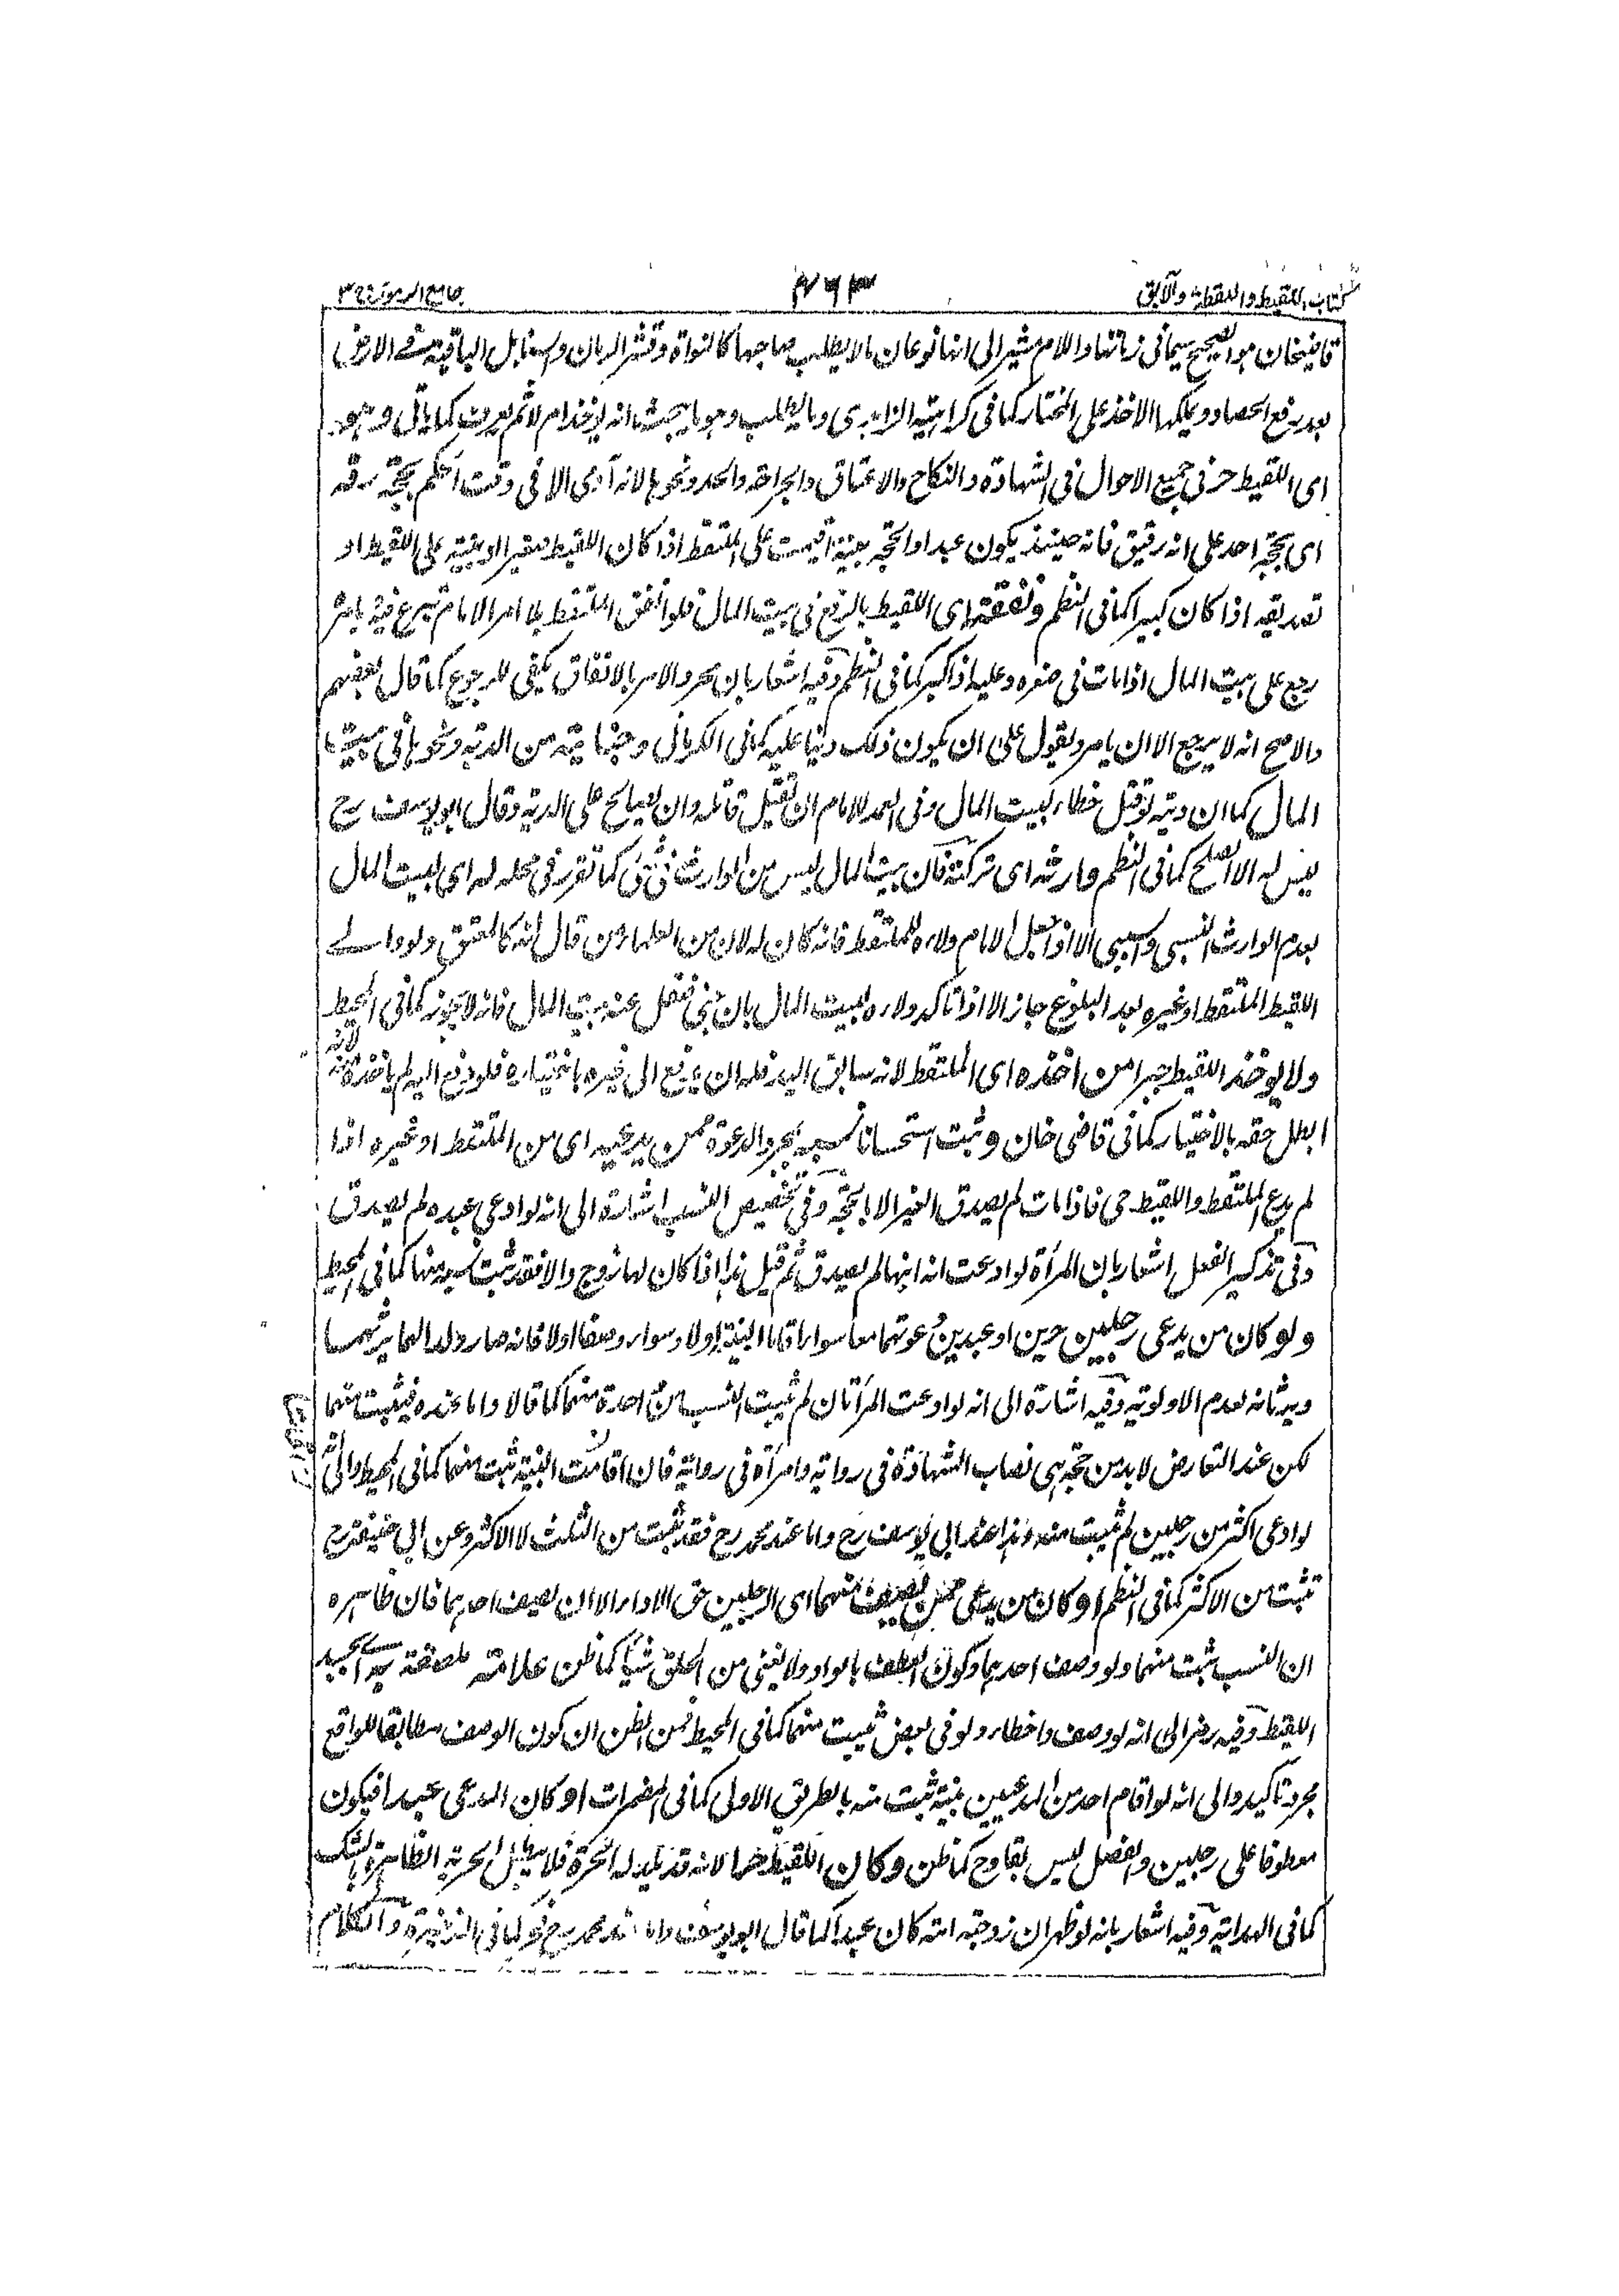 كتاب اللقيط واللقطة والآبق
٤٦٣
جامع الرموز ج ٣
قاضيخان هو الصحيح سيما في زماننا واللام مشير الى انها نوعان ما لا يطلب صاحبها كالنواة وقشر الرمان والسنابل الباقية في الارض
بعد رفع الحصاد ويملكها الآخذ على المختار كما في كراهية الزاهدى وما يطلب وهو ما يبحث انه يؤخذ ام لا ثم يعرف كما يأتى وهو
اى اللقيط حر فى جميع الاحوال فى الشهادة والنكاح والاعتاق والجراحة والحد ونحوها لانه آدمى الا فى وقت الحكم بحجة رقه
اى بحجة احد على انه رقيق فانه حينئذ يكون عبدا والحجة بينة اقيمت على الملتقط اذا كان اللقيط صغيرا او بينة على اللقيط او
تصديقه اذا كان كبيرا كما فى النظم ونفقته اى اللقيط بالرفع فى بيت المال فلو انفق الملتقط بلا امر الامام تبرع فيه بامره
رجع على بيت المال اذا مات فى صغره وعليه اذا كبر كما فى النظم وفيه اشعار بان مجرد الامر بالانفاق يكفى للرجوع كما قال بعضهم
والاصح انه لا يرجع الا ان يامر ويقول على ان يكون ذلك دينا عليه كما فى الكرمانى وجنايته من الدية ونحوها فى بيت
المال كما ان ديته لو قتل خطاء لبيت المال وفى العمد للامام ان يقتل قاتله وان يصالح على الدية وقال ابو يوسف رح
ليس له الا الصلح كما فى النظم وارثه اى تركته فان بيت المال ليس من الوارث فى شئ كما تقرر فى محله له اى لبيت المال
بعدم الوارث النسبى والسببى الا اذا جعل الامام ولاءه للملتقط فانه كان له لان من العلماء من قال انه كالمعتق ولو والى
اللقيط الملتقط او غيره بعد البلوغ جاز الا اذا تاكد ولاءه لبيت المال بان جنى فعقل عنه بيت المال فانه لا يجوز كما فى المحيط
ولا يؤخذ اللقيط جبرا من اخذه اى الملتقط لانه سابق اليد فله ان يدفع الى غيره باختياره فلو دفع اليه لم ياخذه منه لانه
ابطل حقه بالاختيار كما فى قاضى خان وثبت استحسانا نسبه بمجرد الدعوة ممن يدعيه اى من الملتقط او غيره اذا
لم يدع الملتقط واللقيط حى فاذا مات لم يصدق الغير الا بالحجة وفى تخصيص النسب اشارة الى انه لو ادعى عبده لم يصدق
وفى تذكير الفعل اشعار بان المرأة لو ادعت انه ابنها لم يصدق ثم قيل هذا اذا كان لها زوج والا فقد ثبت نسبه منها كما فى المحيط
ولو كان من يدعى رجلين حرين او عبدين دعوتهما معا سواء اقاما البينة اولا وسواء وصفا اولا فانه صار ولدا لهما يرثهما
ويرثانه لعدم الاولوية وفيه اشارة الى انه لو ادعت المرأتان لم يثبت النسب من واحدة منهما كما قالا واما عنده فيثبت منهما
لكن عند التعارض لا بد من حجة هى نصاب الشهادة فى رواية وامرأة فى رواية فان اقامتا البينة ثبت منهما كما فى المحيط والى انه
لو ادعى اكثر من رجلين لم يثبت منه وهذا عند ابى يوسف رح واما عند محمد رح فقد ثبت من الثلث لا الاكثر وعن ابى حنيفة رح
تثبت من الاكثر كما فى النظم او كان من يدعى ممن يصف منهما اى الرجلين حق الاداء الا ان يصف احدهما فان ظاهره
ان النسب ثبت منهما ولو وصف احدهما وكون العطف بالواو ولا يغنى من الحق شيئا كما ظن علامته ملصقة بجسد
اللقيط وفيه رمز الى انه لو وصف واخطاء ولو فى بعض ثبت منهما كما فى المحيط فمن الظن ان كون الوصف مطابقا للواقع
مجرد تاكيد والى انه لو اقام احد من المدعيين بينة ثبت منه بالطريق الاولى كما فى المضمرات او كان المدعى عبدا فيكون
معطوفا على رجلين والفصل ليس بقادح كما ظن وكان اللقيط حرا لانه قد تلد له الحرة فلا يبطل الحرية الظاهرة بالشك
كما فى الهداية وفيه اشعار بانه لو ظهر ان زوجته امة كان عبدا كما قال ابو يوسف واما عند محمد رح فحر كما فى الذخيرة والكلام